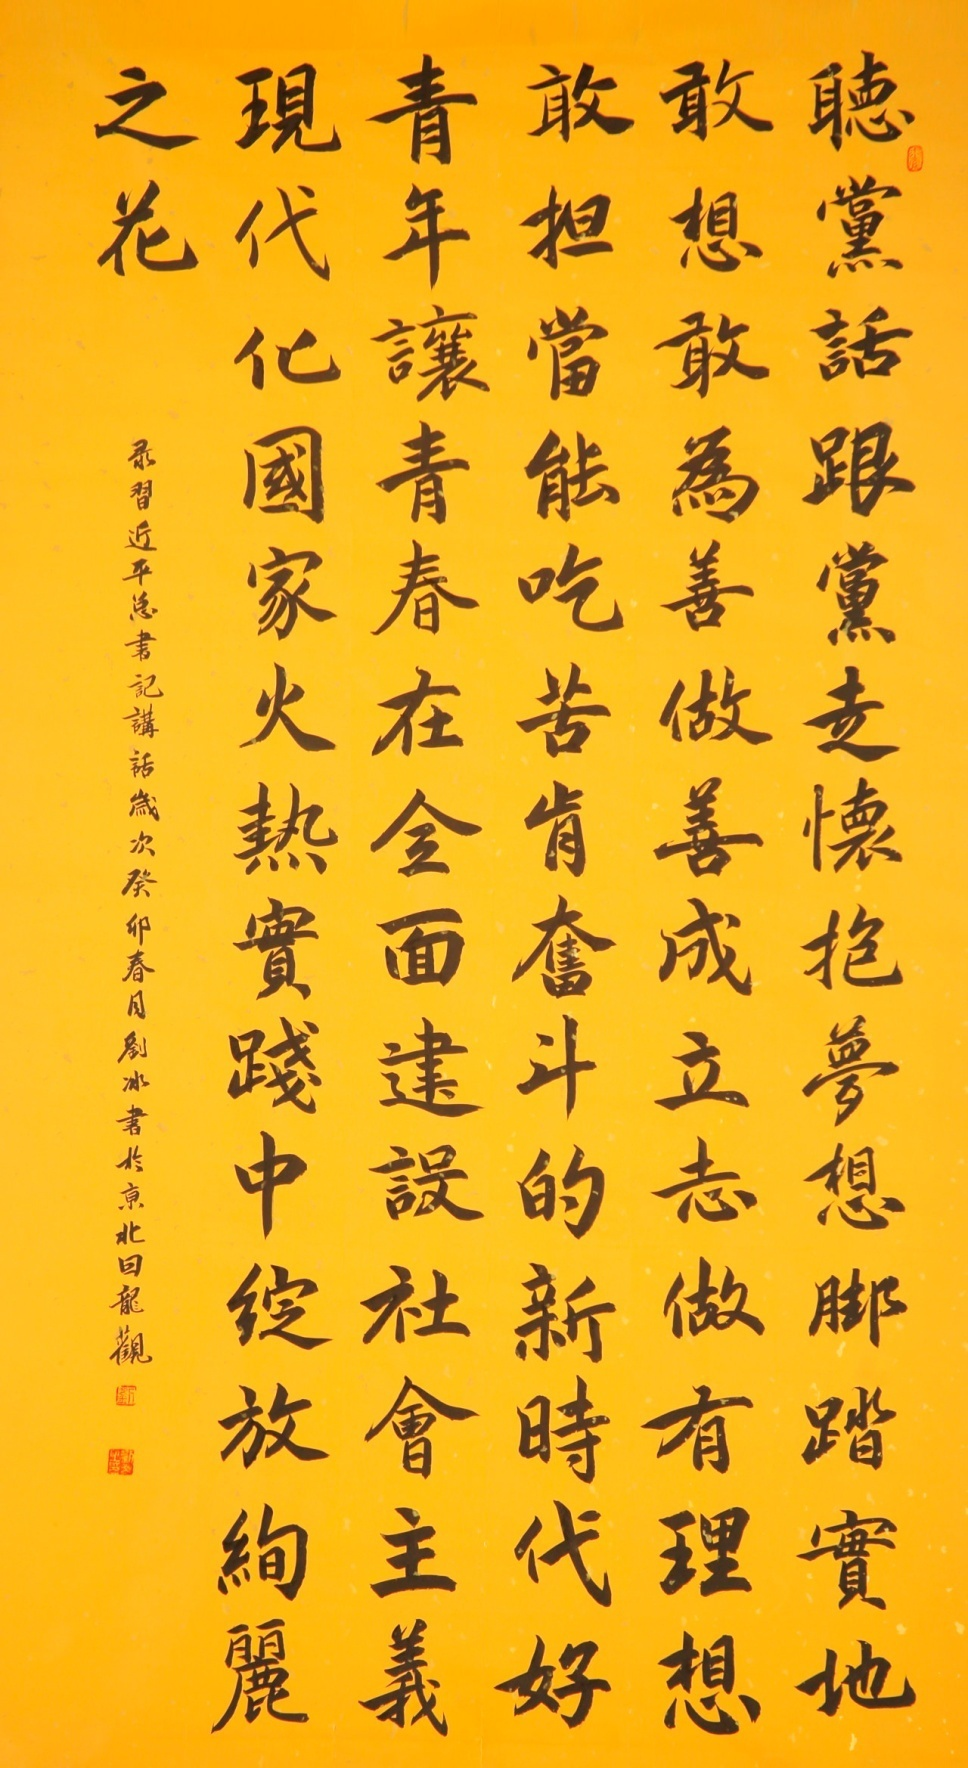 聽黨話跟黨走懷抱夢想腳踏實地
敢想敢為善做善成立志做有理想
敢担當能吃苦肯奮斗的新時代好
青年讓青春在全面建設社會主義
現代化國家火熱實踐中綻放絢麗
之花
录習近平总書記講話歲次癸卯春月劉冰書於京北回龍觀